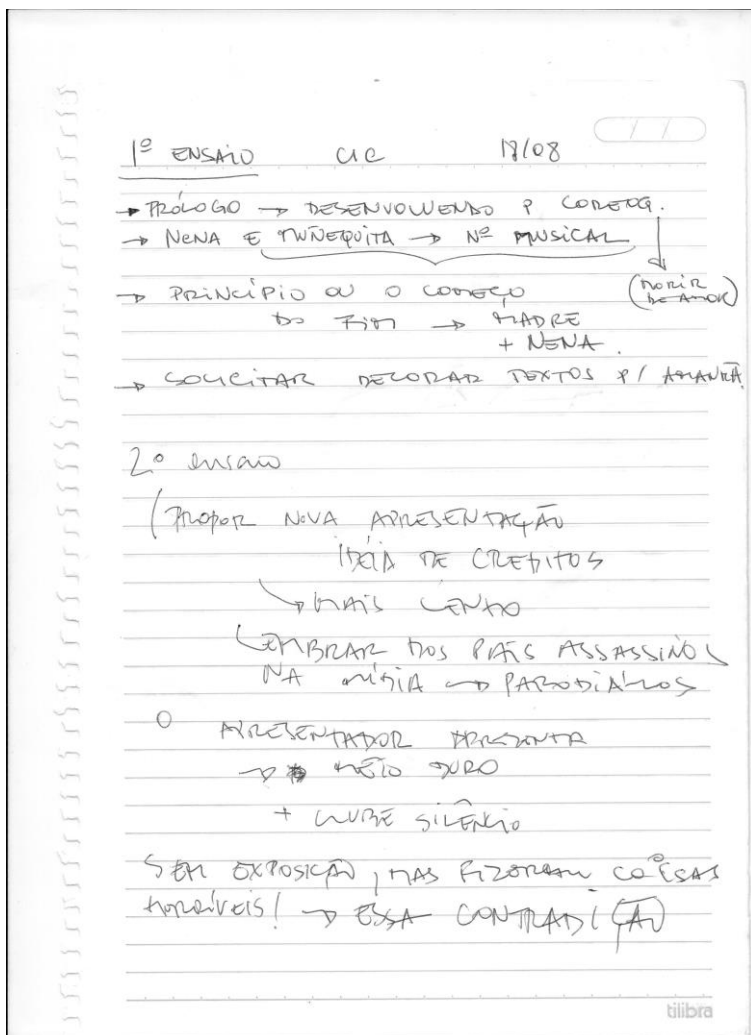 1º ENSAIO CIC 18/08
→ PRÓLOGO → DESENVOLVENDO P COREOG.
→ NENA E MUÑEQUITA → Nº MUSICAL
→ PRINCÍPIO OU O COMEÇO (MORIR
DO FIM → MADRE DE AMOR)
+ NENA.
→ SOLICITAR DECORAR TEXTOS P/ AMANHÃ.
2º ensaio
(PROPOR NOVA APRESENTAÇÃO
IDÉIA DE CREDITOS
→ MAIS LENTO
LEMBRAR DOS PAIS ASSASSINOS
NA MÍDIA → PARODIÁ-LOS
O APRESENTADOR APRESENTA
→ MEIO DURO
+ CLUBE SILÊNCIO
SEM EXPOSIÇÃO, MAS FIZERAM COISAS
HORRÍVEIS! → ESSA CONTRADIÇÃO
tilibra